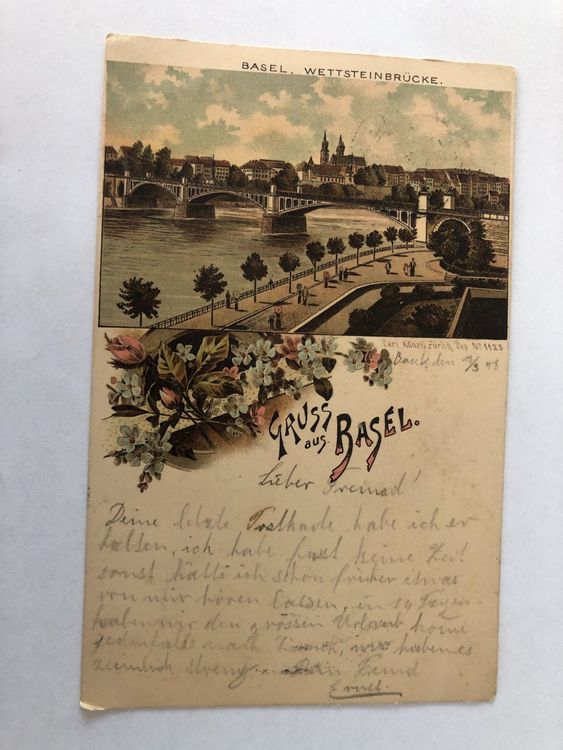 BASEL, WETTSTEINBRÜCKE.
Carl Künzli Zürich Dep. No 1125
Basel, den
GRUSS
aus BASEL.
Lieber Freund!
Deine letzte Postkarte habe ich er
halten, ich habe fast keine Zeit
sonst hätte ich schon früher etwas
von mir hören lassen, in 14 Tagen
haben wir den grossen Urlaub komme
jedenfalls nach Zürich, wir haben es
ziemlich streng... Dein Freund
Ernst.